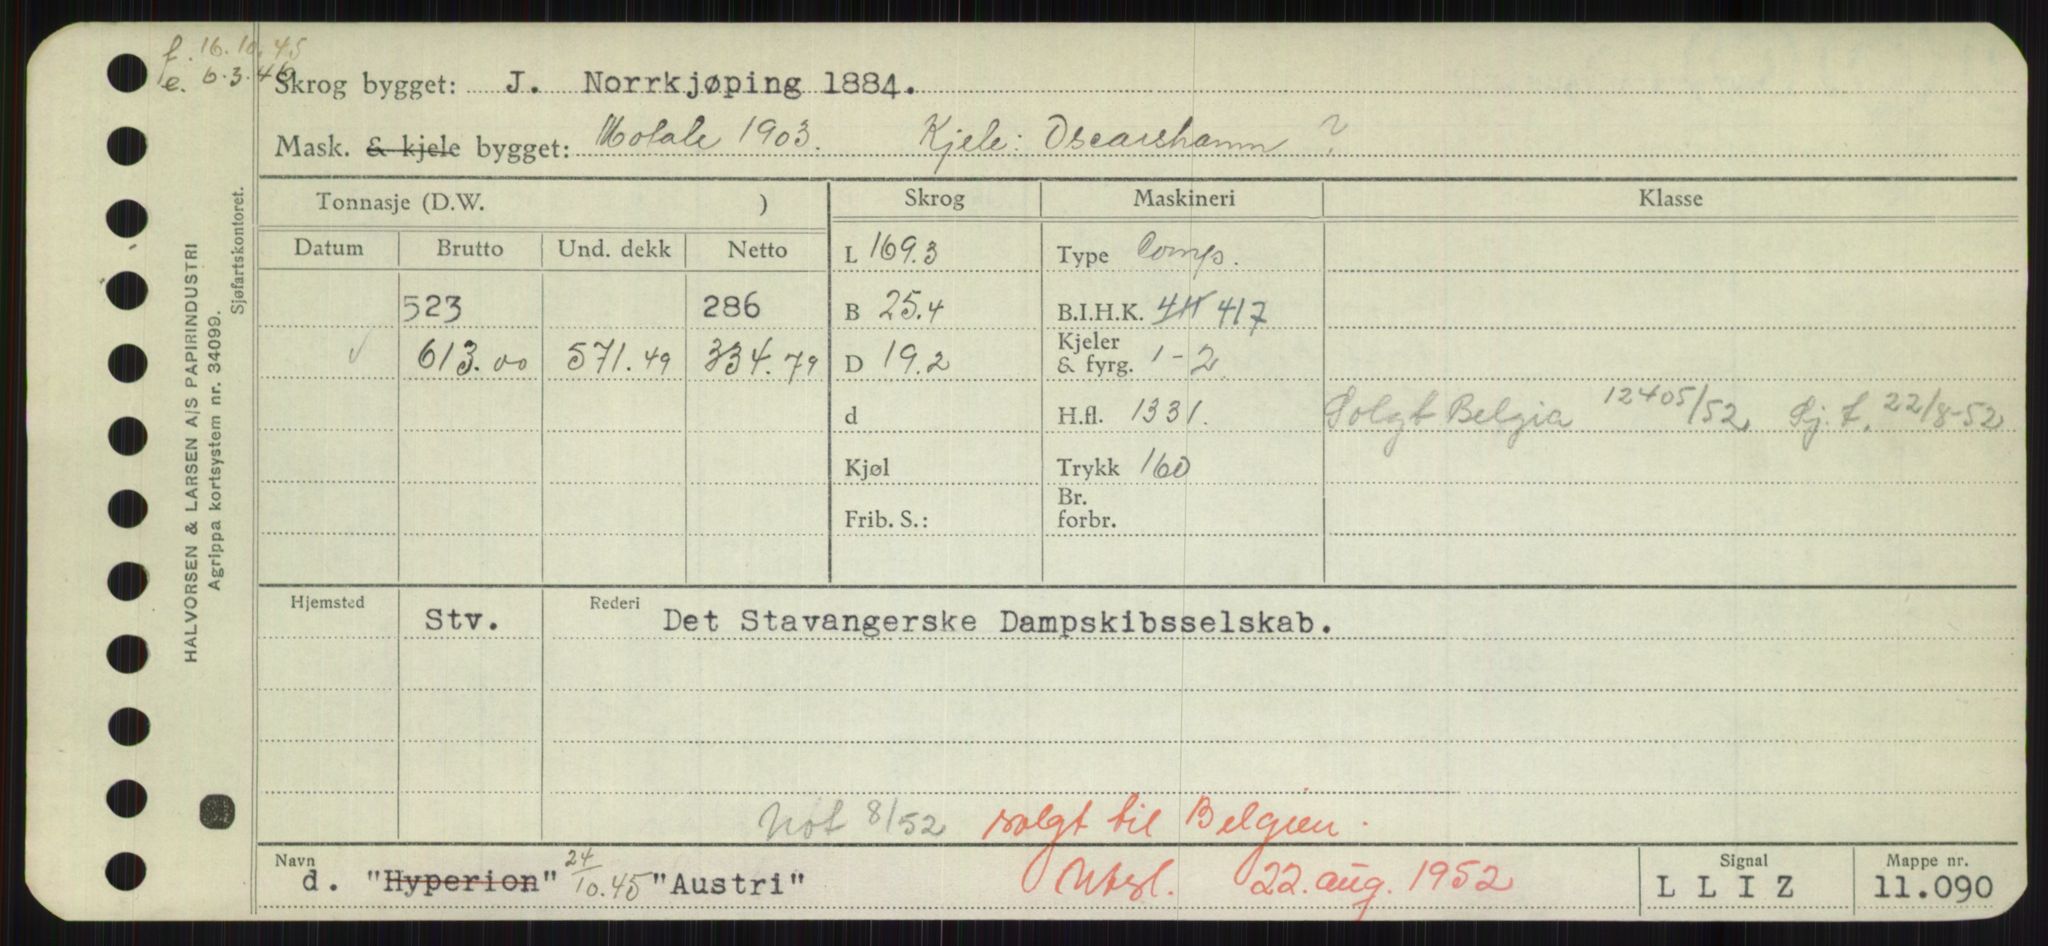 f. 16.10.45
e. 6.3.46
Skrog bygget: J. Norrkjøping 1884.
Mask. & kjele bygget: Motale 1903. Kjele: Oscarshamn ?
Tonnasje (D.W. )
Skrog
Maskineri
Klasse
Datum
Brutto
Und. dekk
Netto
L 169.3
Type Comp.
523
286
B 25.4
B.I.H.K. 417
✓ 613.00 571.49 334.79
D 19.2
Kjeler
& fyrg. 1-2
d
H.fl. 1331.
Solgt Belgia 12405/52 Sj.f. 22/8-52
Kjøl
Trykk 160
Frib. S.:
Br.
forbr.
Hjemsted
Stv.
Rederi
Det Stavangerske Dampskibsselskab.
Not 8/52 solgt til Belgien.
Navn
d. "Hyperion" 24/10.45 "Austri"
Utsl. 22. aug. 1952
Signal
L L I Z
Mappe nr.
11.090
HALVORSEN & LARSEN A/S PAPIRINDUSTRI
Agrippa kortsystem nr. 34099.
Sjøfartskontoret.